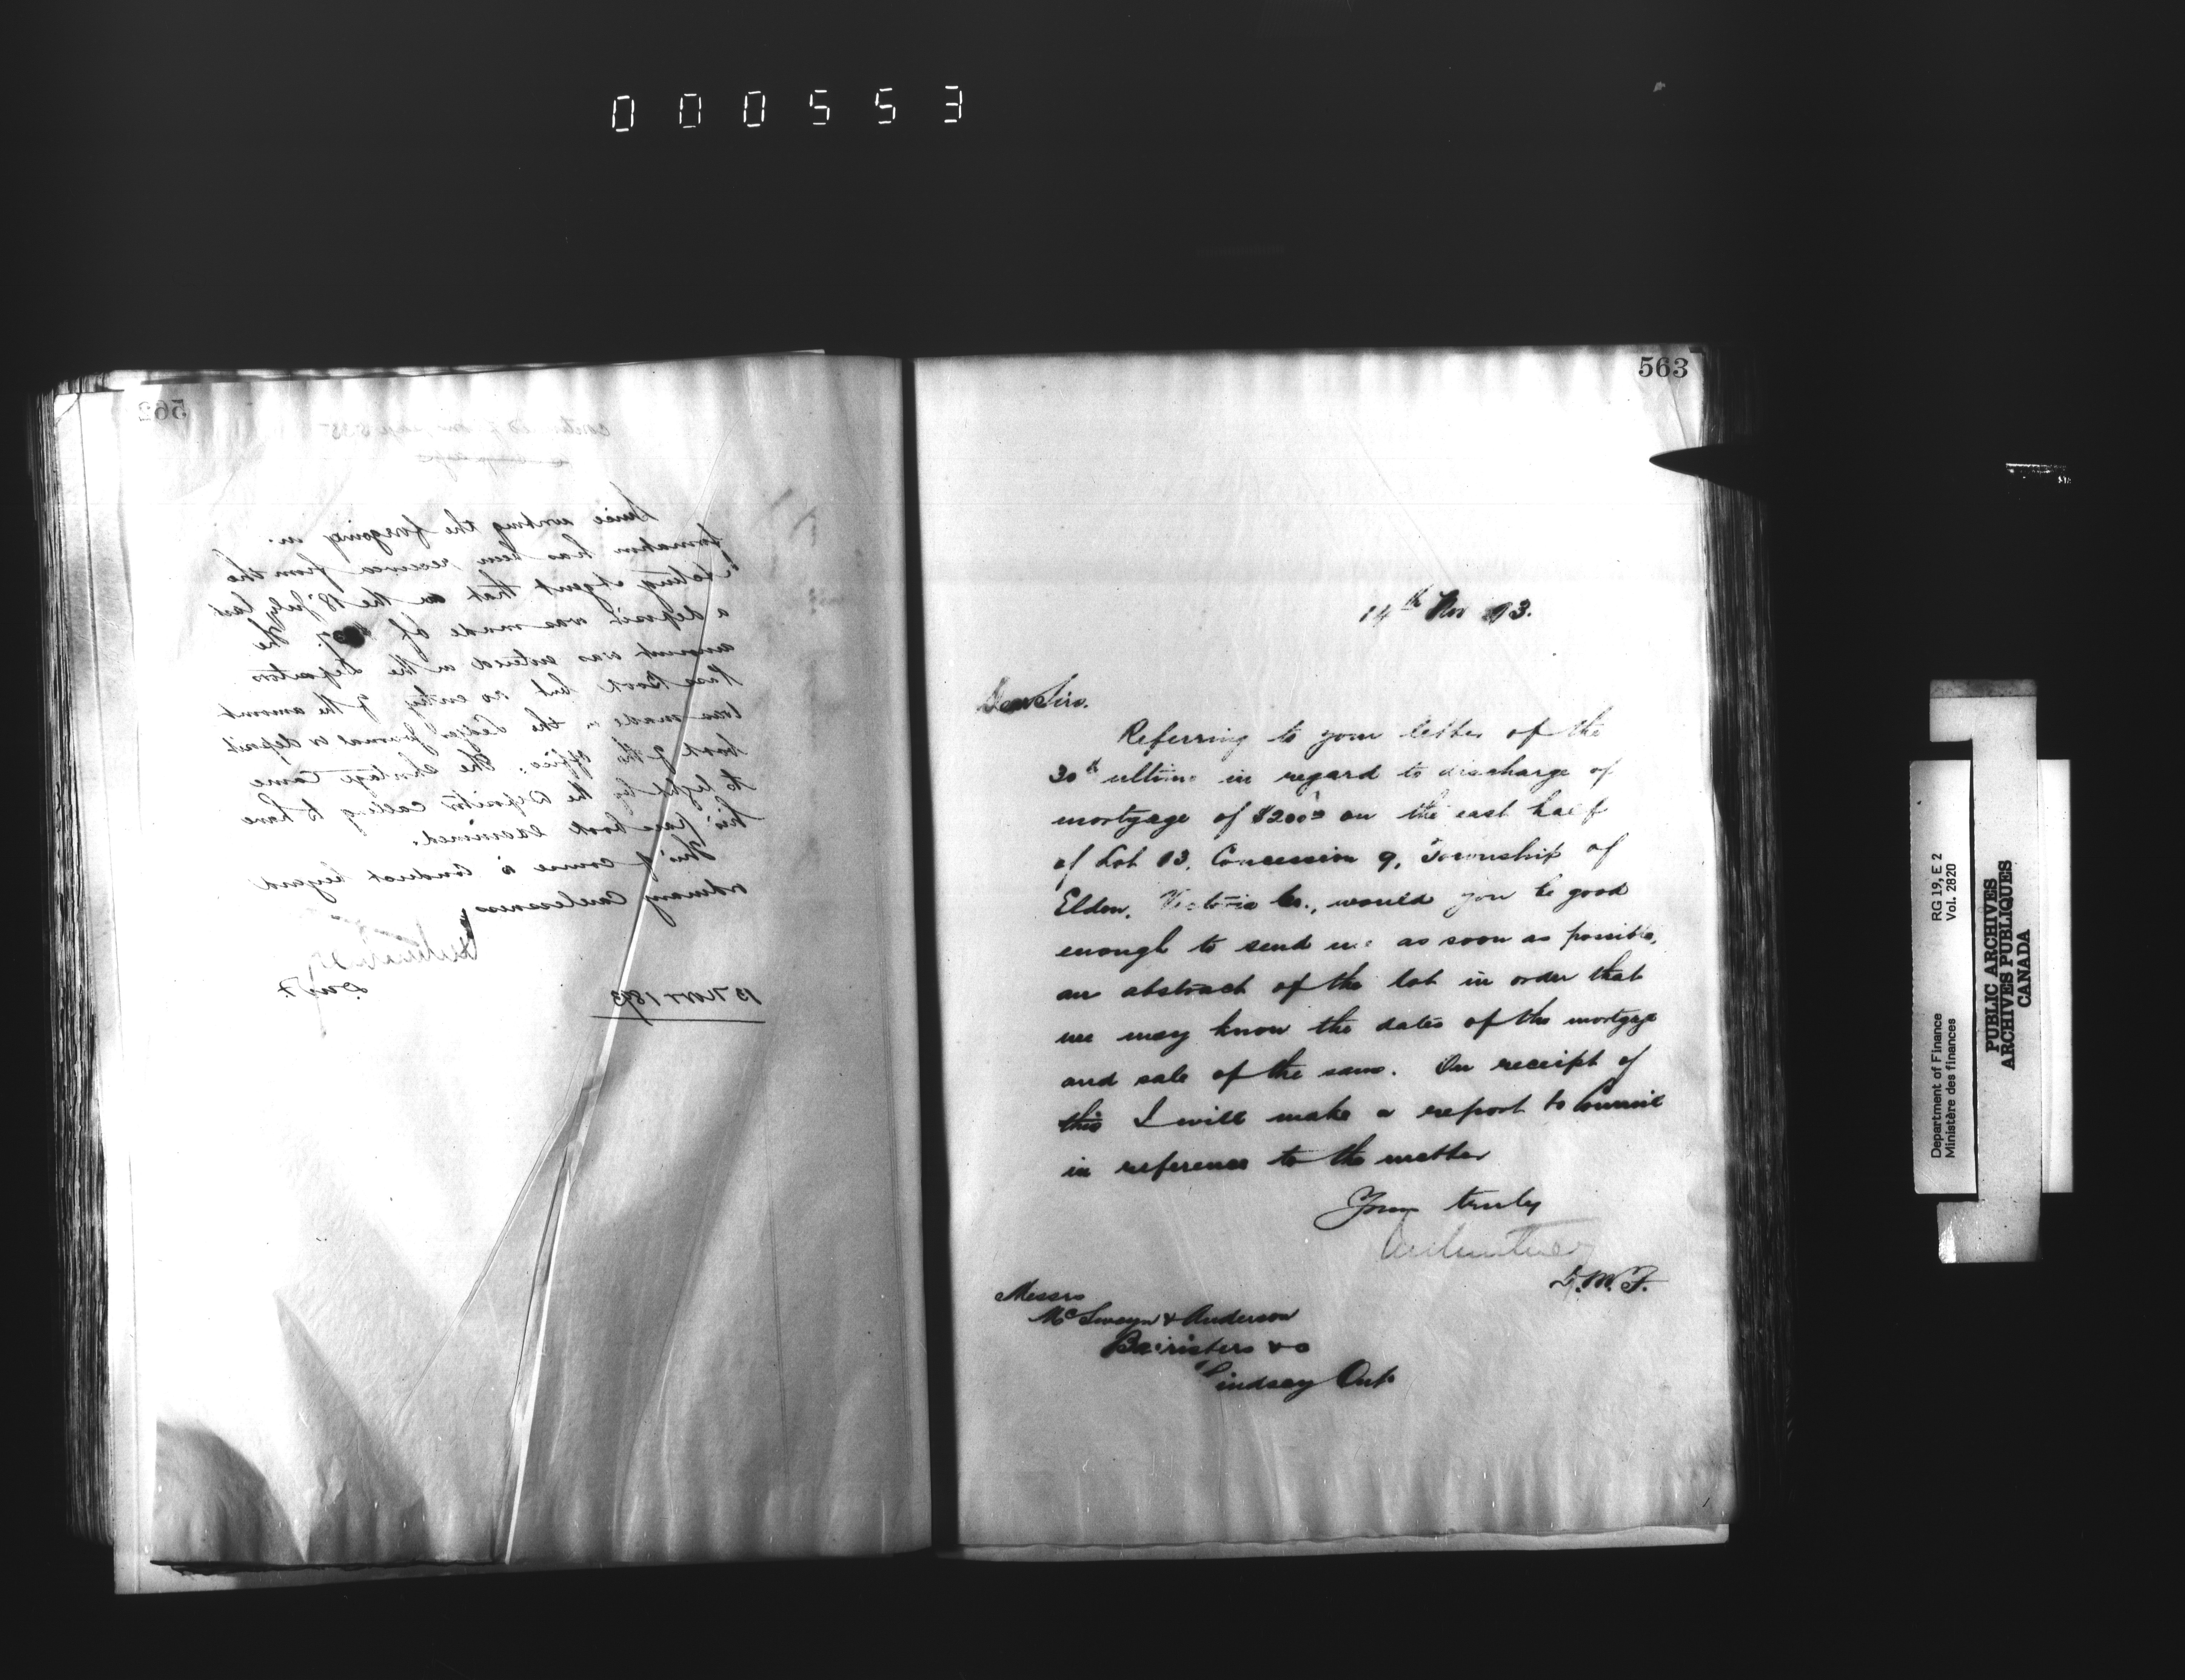 000553
562
Since writing the foregoing in-
formation has been received from the
Acting Agent that on the 18 July last
a deposit was made of $ the
amount was entered in the depositors
Pass Book but no entry of the amount
was made in the Ledger Journal or deposit
book of the office: the shortage came
to light by the Depositor calling to have
his pass book examined.
This of course is conduct beyond
ordinary carelessness
13 Nov 1893
563
14th Nov 93.
Dear Sirs.
Referring to your letter of the
30th ultimo in regard to discharge of
mortgage of $200 on the east half
of Lot 13, Concession 9, Township of
Eldon, Victoria Co., would you be good
enough to send me as soon as possible,
an abstract of the lot in order that
we may know the dates of the mortgage
and sale of the same. On receipt of
this I will make a report to Council
in reference to the matter
Yours truly
D.M.F.
Messrs
McSweyn & Anderson
Barristers &c
Lindsay Ont
Department of Finance RG 19, E 2
Ministère des finances Vol. 2820
PUBLIC ARCHIVES
ARCHIVES PUBLIQUES
CANADA